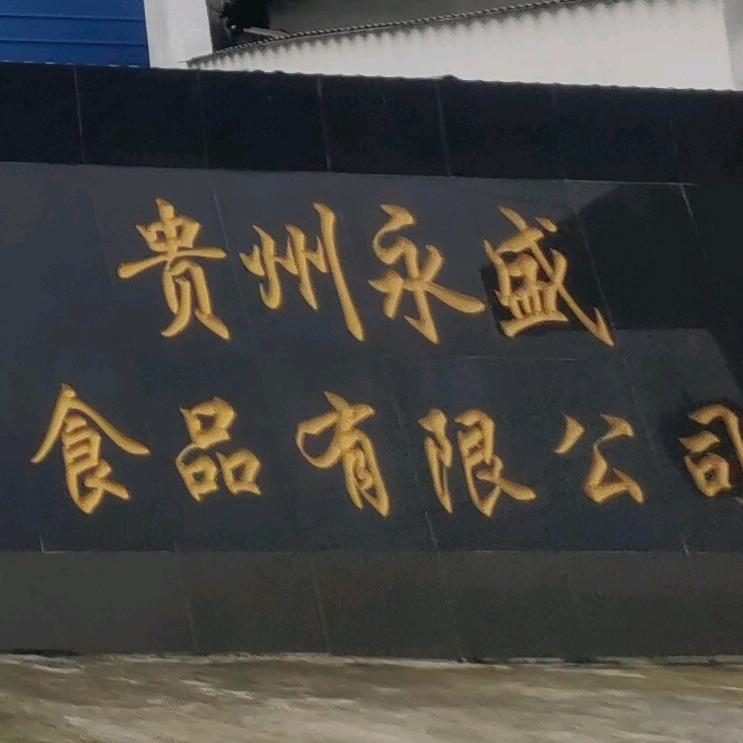 贵州永盛
食品有限公司